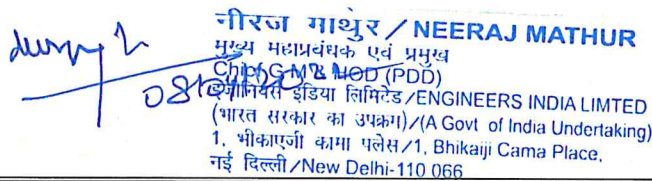 नीरज माथुर / NEERAJ MATHUR
मुख्य महाप्रबंधक एवं प्रमुख
Chief G M & HOD (PDD)
इंजीनियर्स इंडिया लिमिटेड/ENGINEERS INDIA LIMTED
(भारत सरकार का उपक्रम)/(A Govt of India Undertaking)
1, भीकाएजी कामा पलेस/1, Bhikaiji Cama Place,
नई दिल्ली/New Delhi-110 066